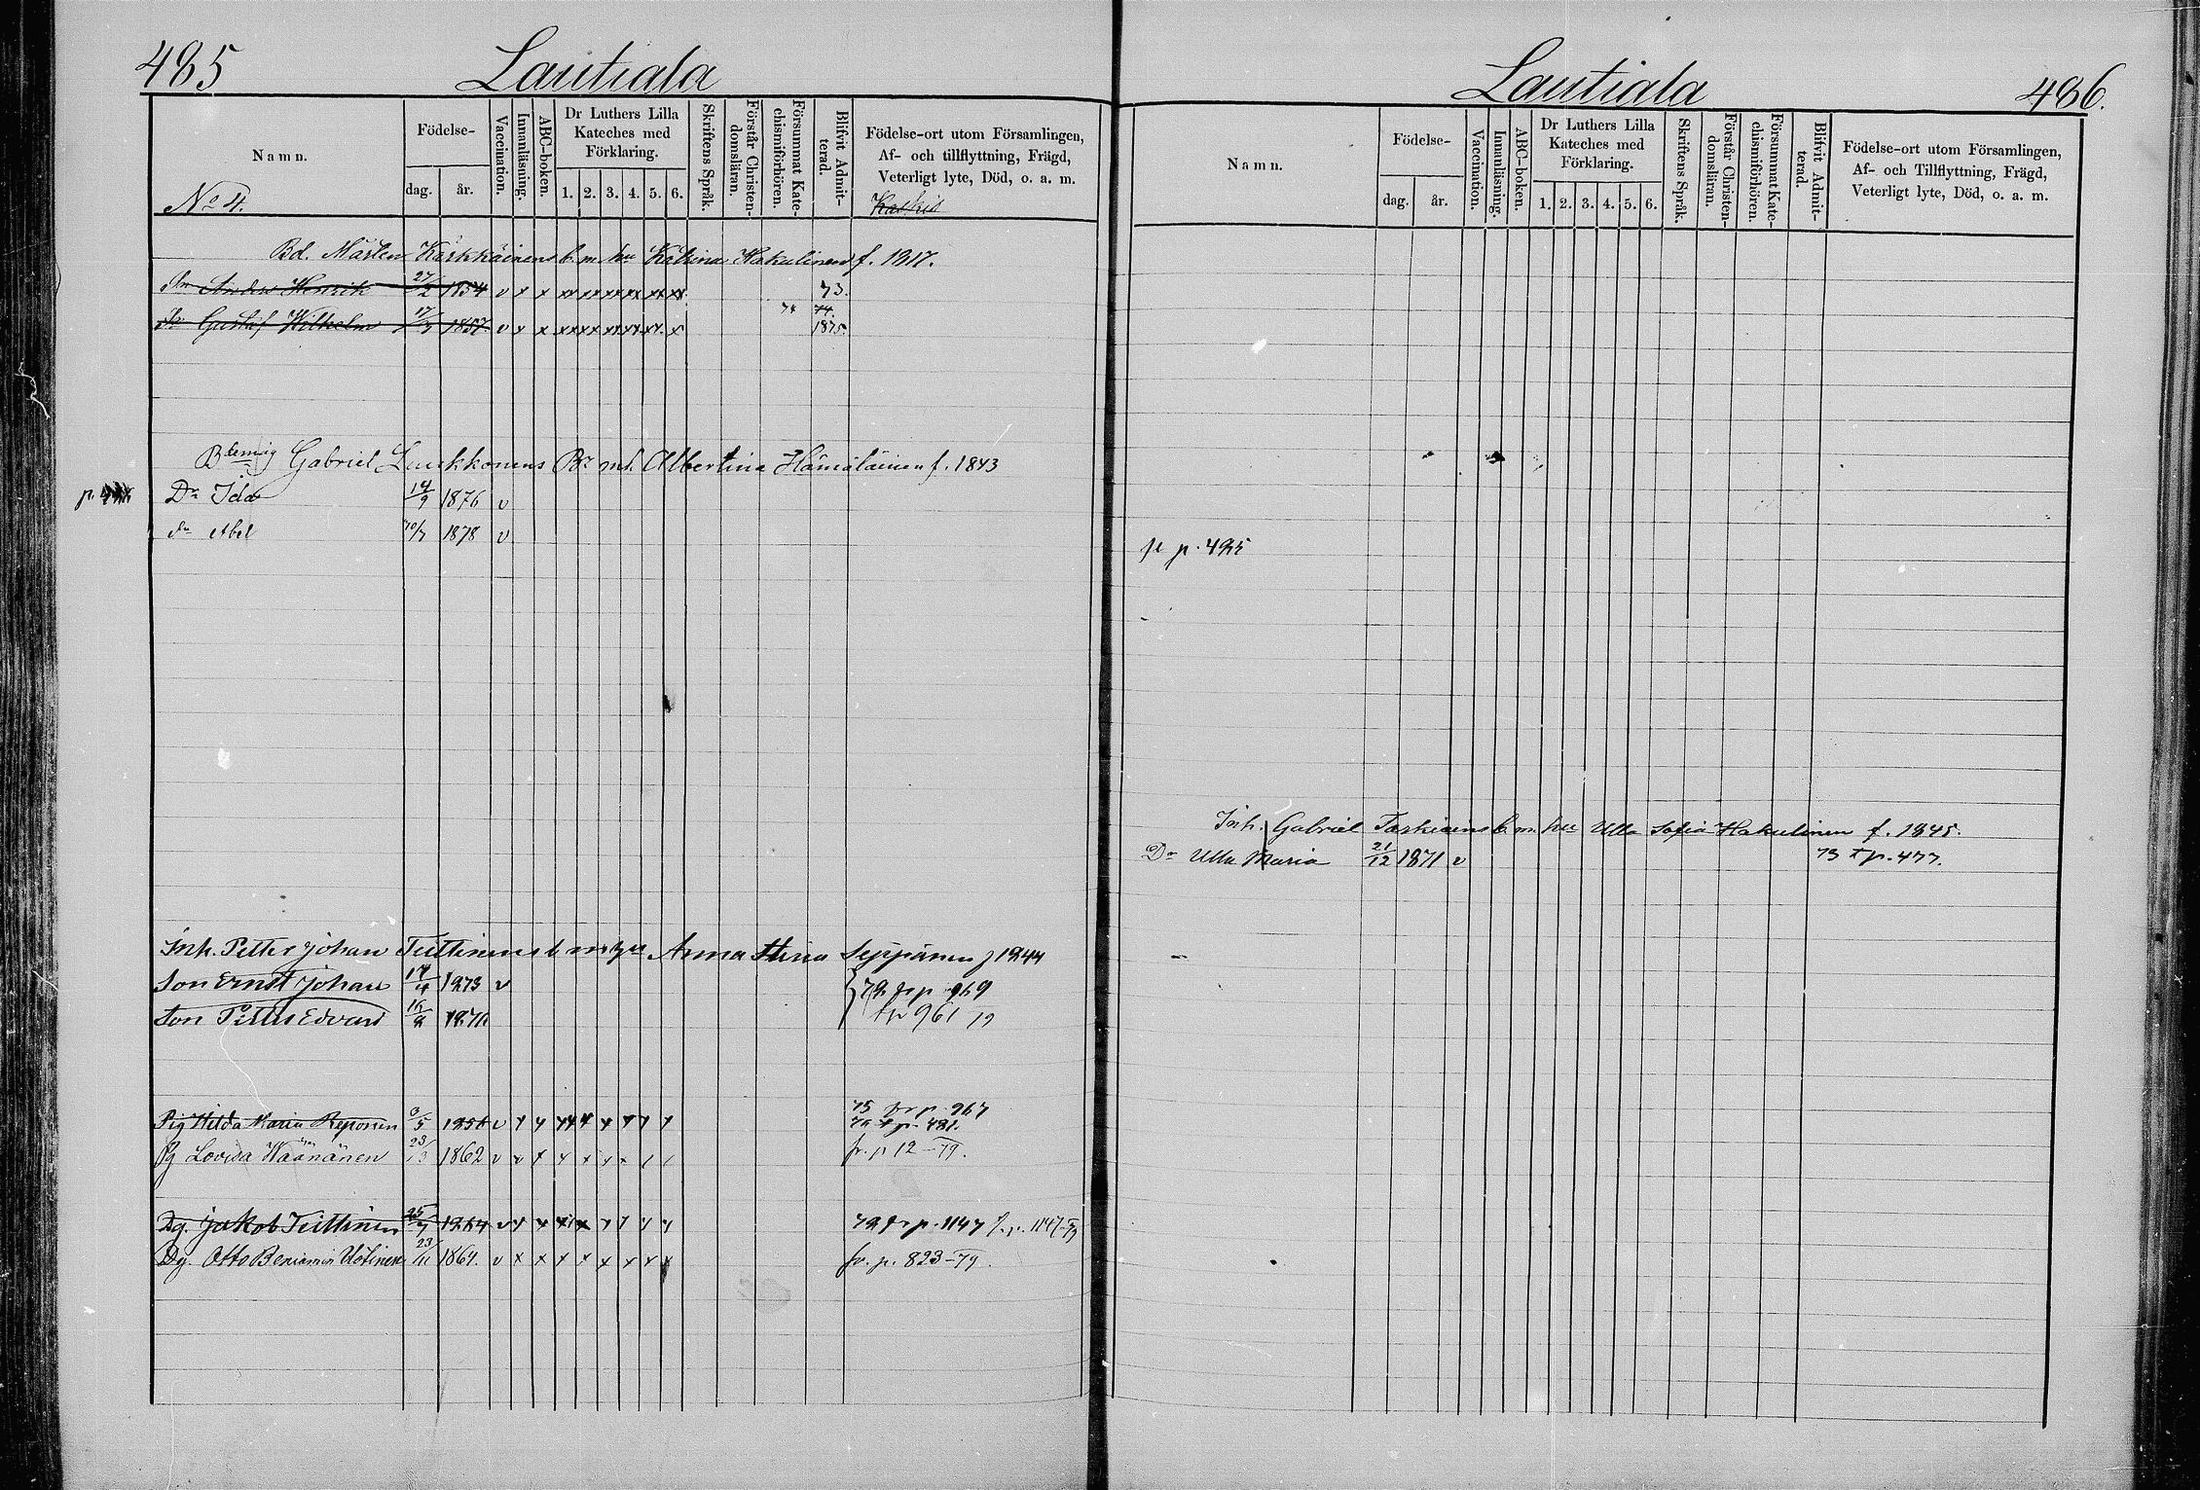 485
Lautiala
Namn.
Födelse-
dag.
år.
Vaccination.
Innanläsning.
ABC-boken.
Dr Luthers Lilla
Kateches med
Förklaring.
1. 2. 3. 4. 5. 6.
Skriftens Språk.
Förstår Christen-
domsläran.
Försummat Kate-
chismiförhören.
Blifvit Admit-
terad.
Födelse-ort utom Församlingen,
Af- och tillflyttning, Frägd,
Veterligt lyte, Död, o. a. m.
No 4.
Bd. Mårten Karkkäinens b. m. hu Katrina Hakulinen f. 1817.
Sn Anders Henrik 27/2 1854 v x x xx xx xx xx xx xx 73.
74 74.
Sn Gustaf Wilhelm 17/7 1857. v x x xx xx xx xx xx. x 1875.
Gabriel Luukkonens Bn m h. Albertina Hämäläinen f. 1843
Dr Ida 14/9 1876 v
Sn Abel 1878 v
Inh. Petter Johan Tuttinens b m hu Anna Stina Seppänen f 1844
Son Ernst Johan 14/4 1873 v
79 fr p 969
Son Petter Edvard
t p 961
75 fr p. 967
Pig Hilda Maria Reponen 1856 v
79 t p. 481.
Pg Lovisa Wäänänen 23/3 1862 v v x x x x x / /
fr. p 12-79.
Dg. Jakob Tuttinen 25/7 1864 v
79 fr p. 1147 fr. p. 1147-79
Dg. Otto Beniamin Ustinen 23/11 1861. v x x x x x x x x
fr. p. 823-79.
Lautiala
486.
Namn.
Födelse-
dag.
år.
Vaccination.
Innanläsning.
ABC-boken.
Dr Luthers Lilla
Kateches med
Förklaring.
1. 2. 3. 4. 5. 6.
Skriftens Språk.
Förstår Christen-
domsläran.
Försummat Kate-
chismiförhören.
Blifvit Admit-
terad.
Födelse-ort utom Församlingen,
Af- och Tillflyttning, Frägd,
Veterligt lyte, Död, o. a. m.
p. 495
Inh. Gabriel Tarkiains b. m. hu Ulla Sofia Hakulinen f. 1845.
Dr Ulla Maria 21/12 1871 v 73 t p. 477.